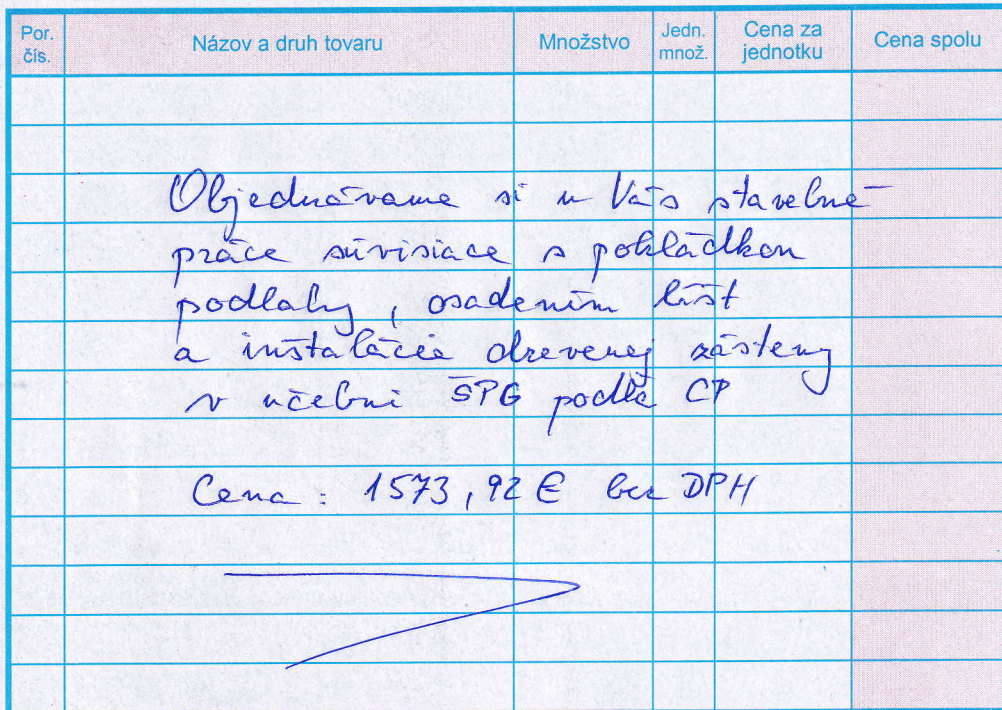 Por. čís.
Názov a druh tovaru
Množstvo
Jedn. množ.
Cena za jednotku
Cena spolu
Objednávame si u Vás stavebné
práce súvisiace s pokládkou
podlahy, osadením líšt
a inštalácie drevenej zásteny
v učebni ŠPG podľa CP
Cena: 1573,92 € bez DPH